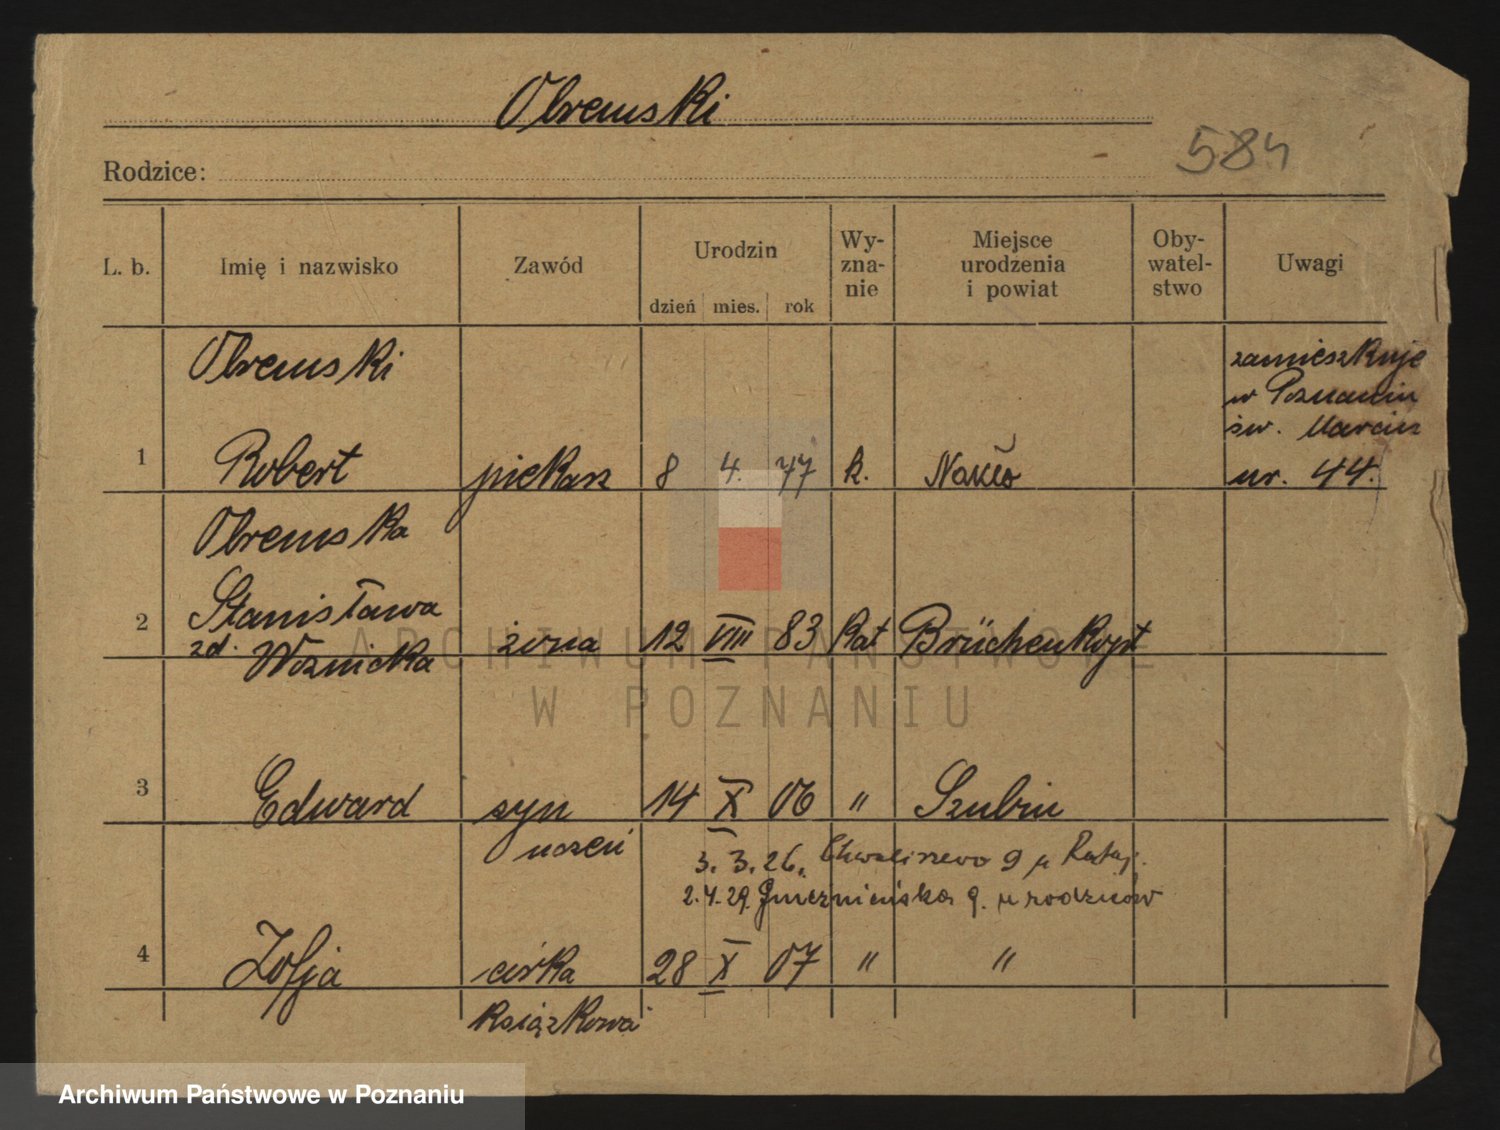 Obremski
584
Rodzice:
L. b. Imię i nazwisko Zawód Urodzin dzień mies. rok Wy-zna-nie Miejsce urodzenia i powiat Oby-watel-stwo Uwagi
Obremski zamieszkuje
w Poznaniu
św. Marcin
1 Robert piekarz 8 4. 77 k. Nakło nr. 44.
Obremska
2 Stanisława żona 12 VIII 83 Kat Brüchenkopf
zd. Woznicka
3 Edward syn 14 X 06 " Szubin
uczeń 3. 3. 26. Chwaliszewo 9 u Rataj.
2. 4. 29. 9. u rodziców
4 Zofja córka 28 X 07 " "
książkowa
ARCHIWUM PAŃSTWOWE
W POZNANIU
Archiwum Państwowe w Poznaniu